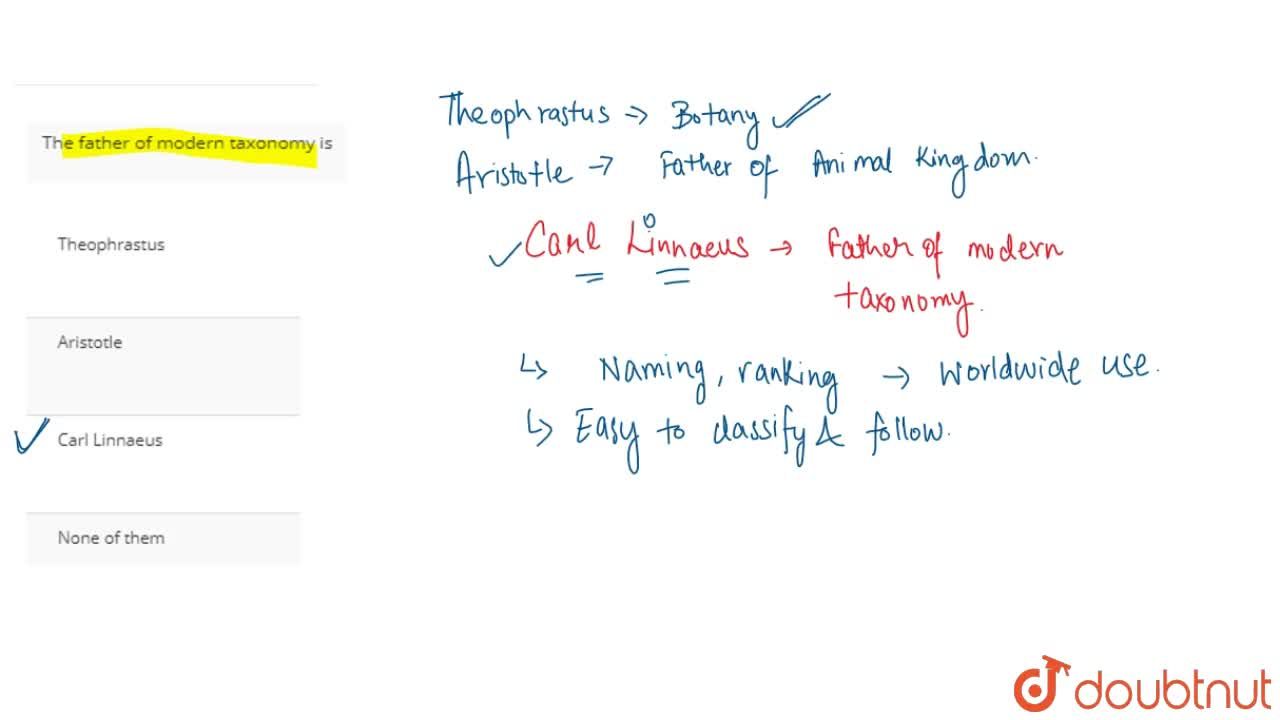 The father of modern taxonomy is
Theophrastus
Aristotle
Carl Linnaeus
None of them
Theophrastus → Botany
Aristotle → Father of Animal Kingdom.
Carl Linnaeus → Father of modern
taxonomy.
↳ Naming, ranking → Worldwide use.
↳ Easy to classify & follow.
doubtnut